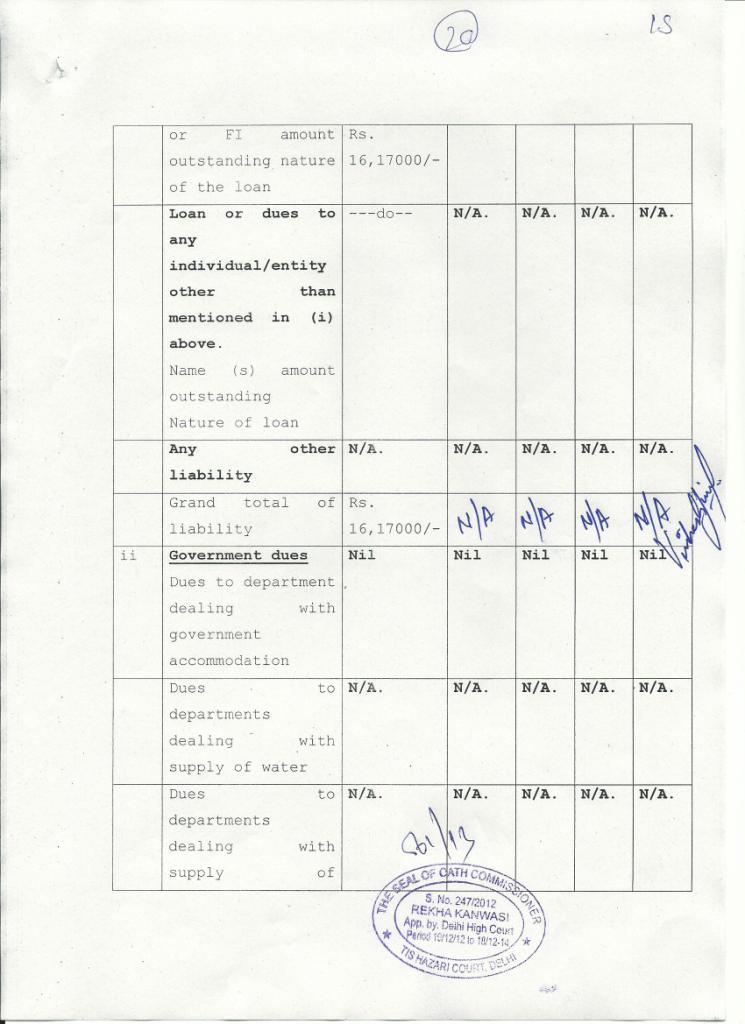 20
or FI amount Rs.
outstanding nature 16,17000/-
of the loan
Loan or dues to ---do-- N/A. N/A. N/A. N/A.
any
individual/entity
other than
mentioned in (i)
above.
Name (s) amount
outstanding
Nature of loan
Any other N/A. N/A. N/A. N/A. N/A.
liability
Grand total of Rs.
liability 16,17000/- N/A N/A N/A N/A
ii Government dues Nil Nil Nil Nil Nil
Dues to department
dealing with
government
accommodation
Dues to N/A. N/A. N/A. N/A. N/A.
departments
dealing with
supply of water
Dues to N/A. N/A. N/A. N/A. N/A.
departments
dealing with
supply of
THE SEAL OF OATH COMMISSIONER
S. No. 247/2012
REKHA KANWASI
App. by. Delhi High Court
Period 19/12/12 to 18/12-14
TIS HAZARI COURT, DELHI